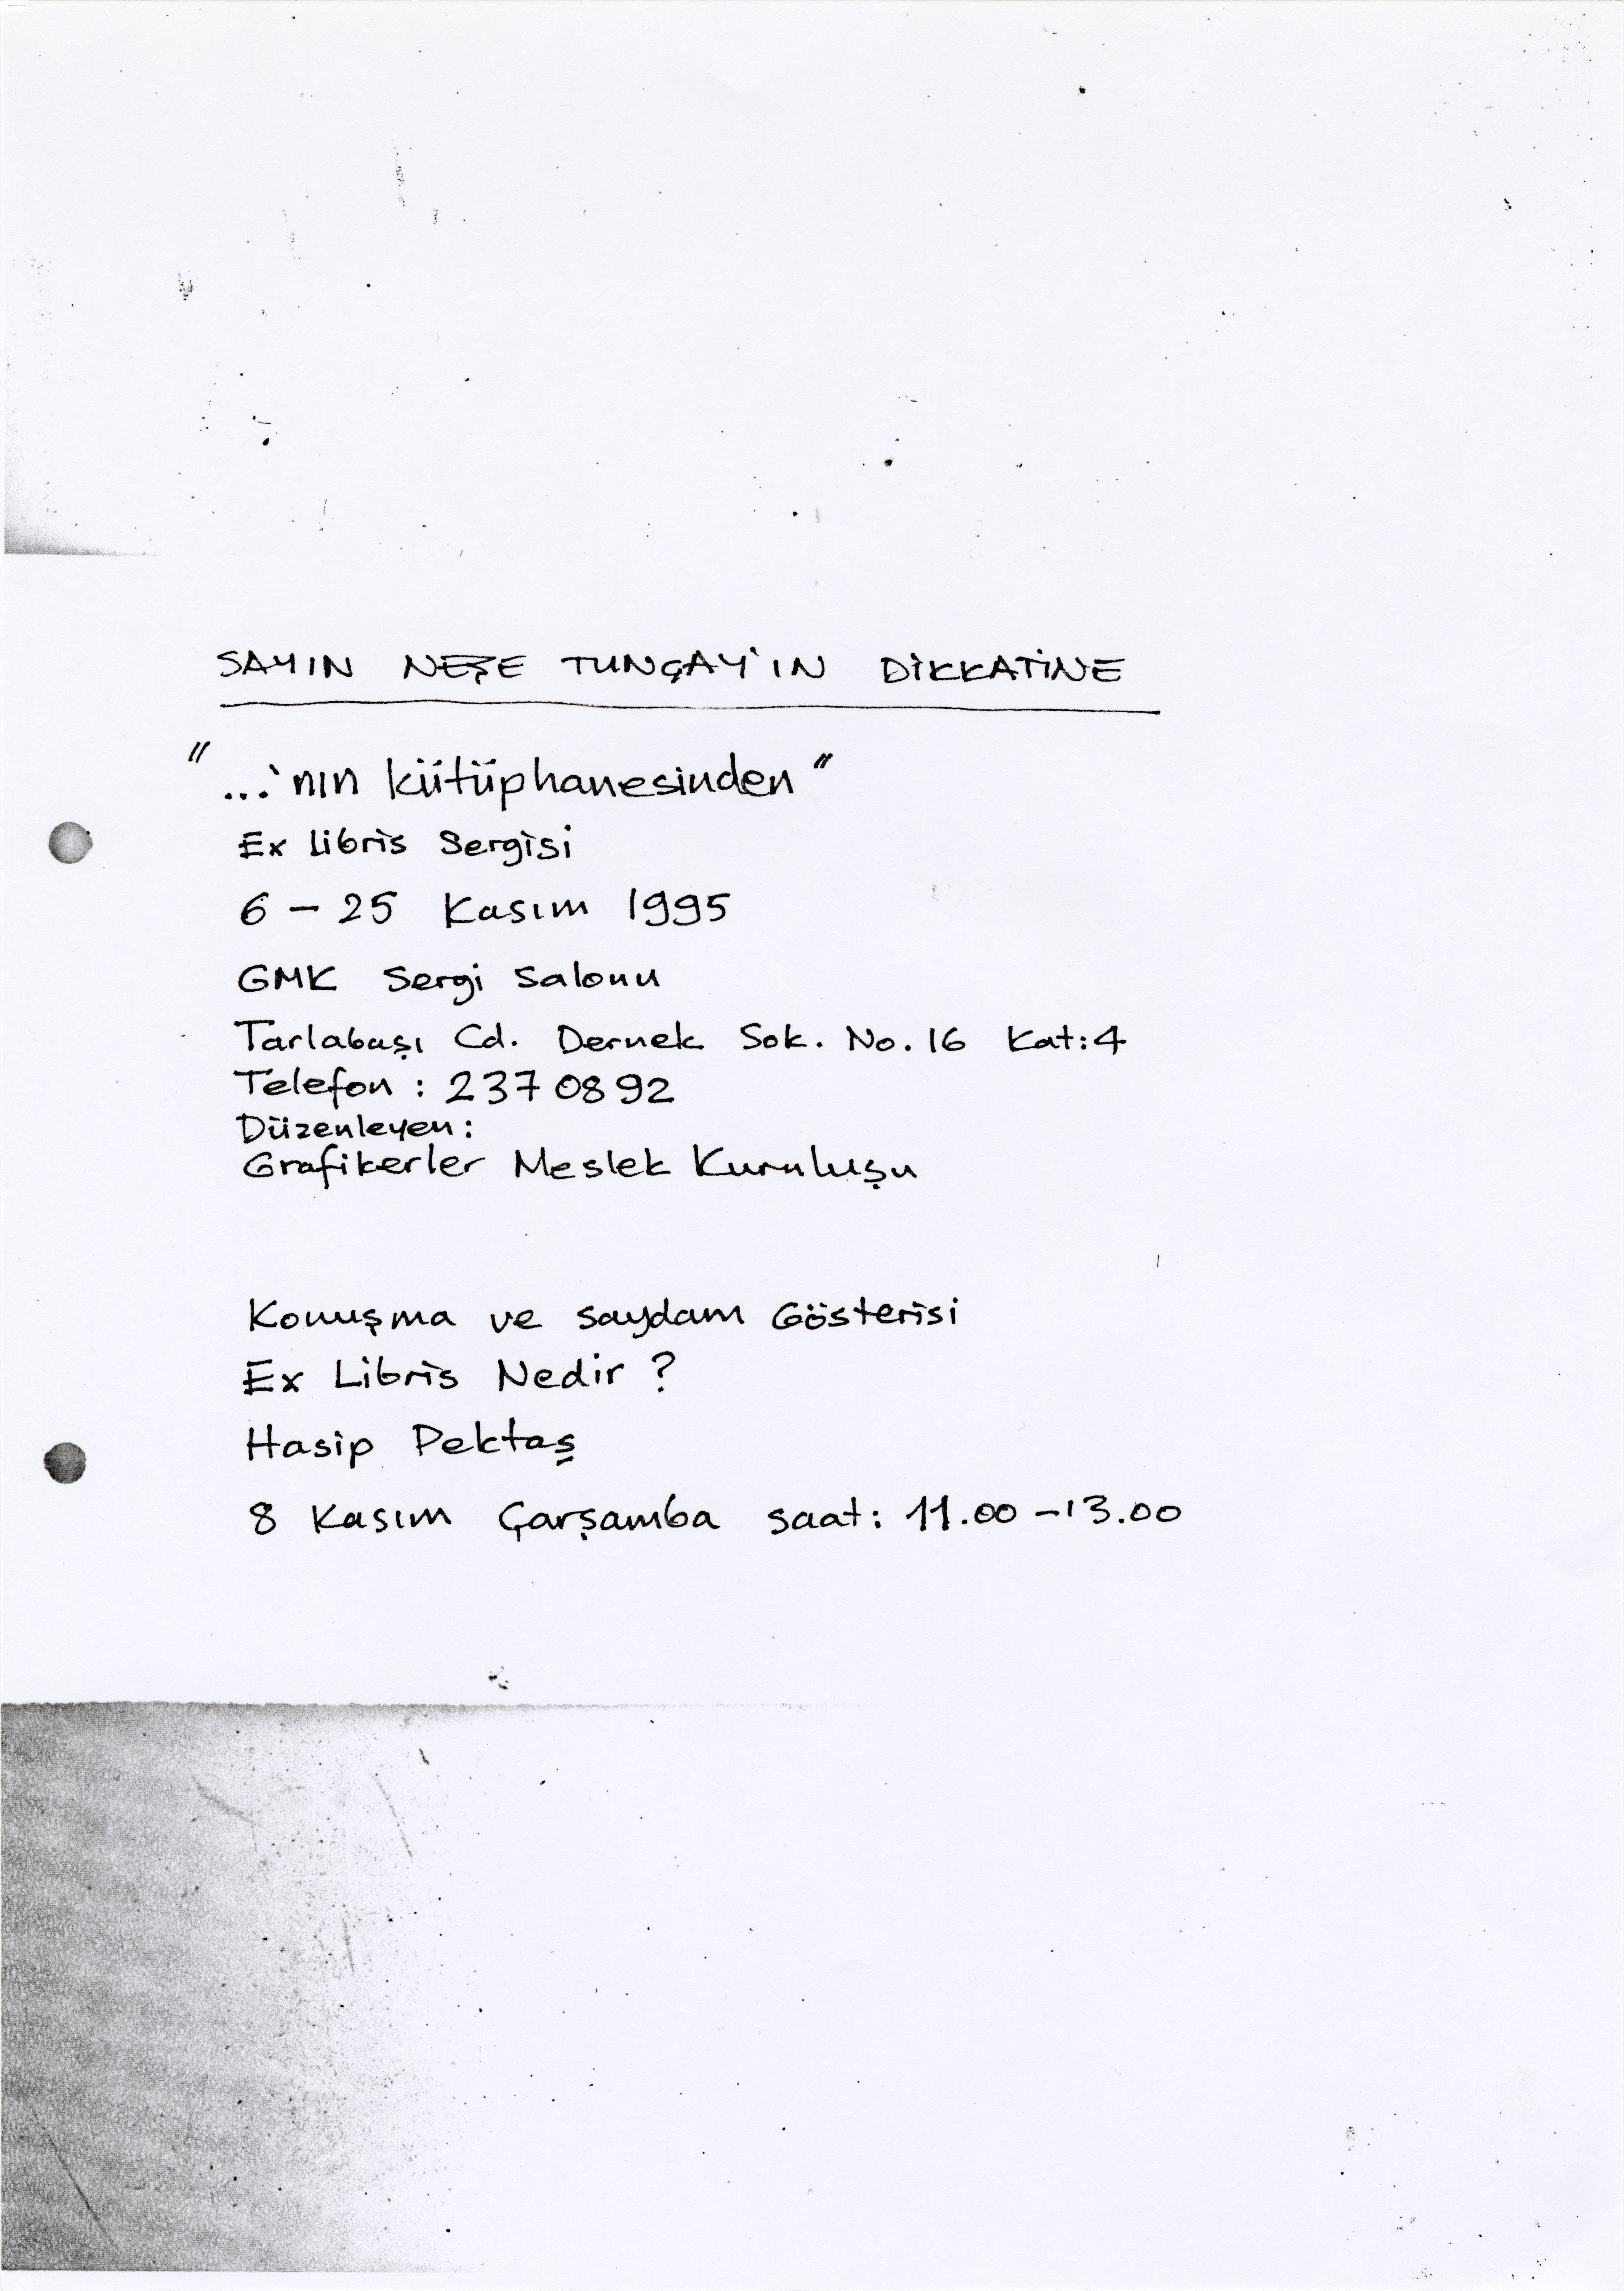 SAYIN NEŞE TUNÇAY'IN DİKKATİNE
"...'nın kütüphanesinden"
Ex libris Sergisi
6 – 25 Kasım 1995
GMK Sergi Salonu
Tarlabaşı Cd. Dernek Sok. No.16 Kat:4
Telefon : 237 08 92
Düzenleyen:
Grafikerler Meslek Kuruluşu
Konuşma ve saydam Gösterisi
Ex Libris Nedir ?
Hasip Pektaş
8 Kasım Çarşamba saat: 11.00 –13.00